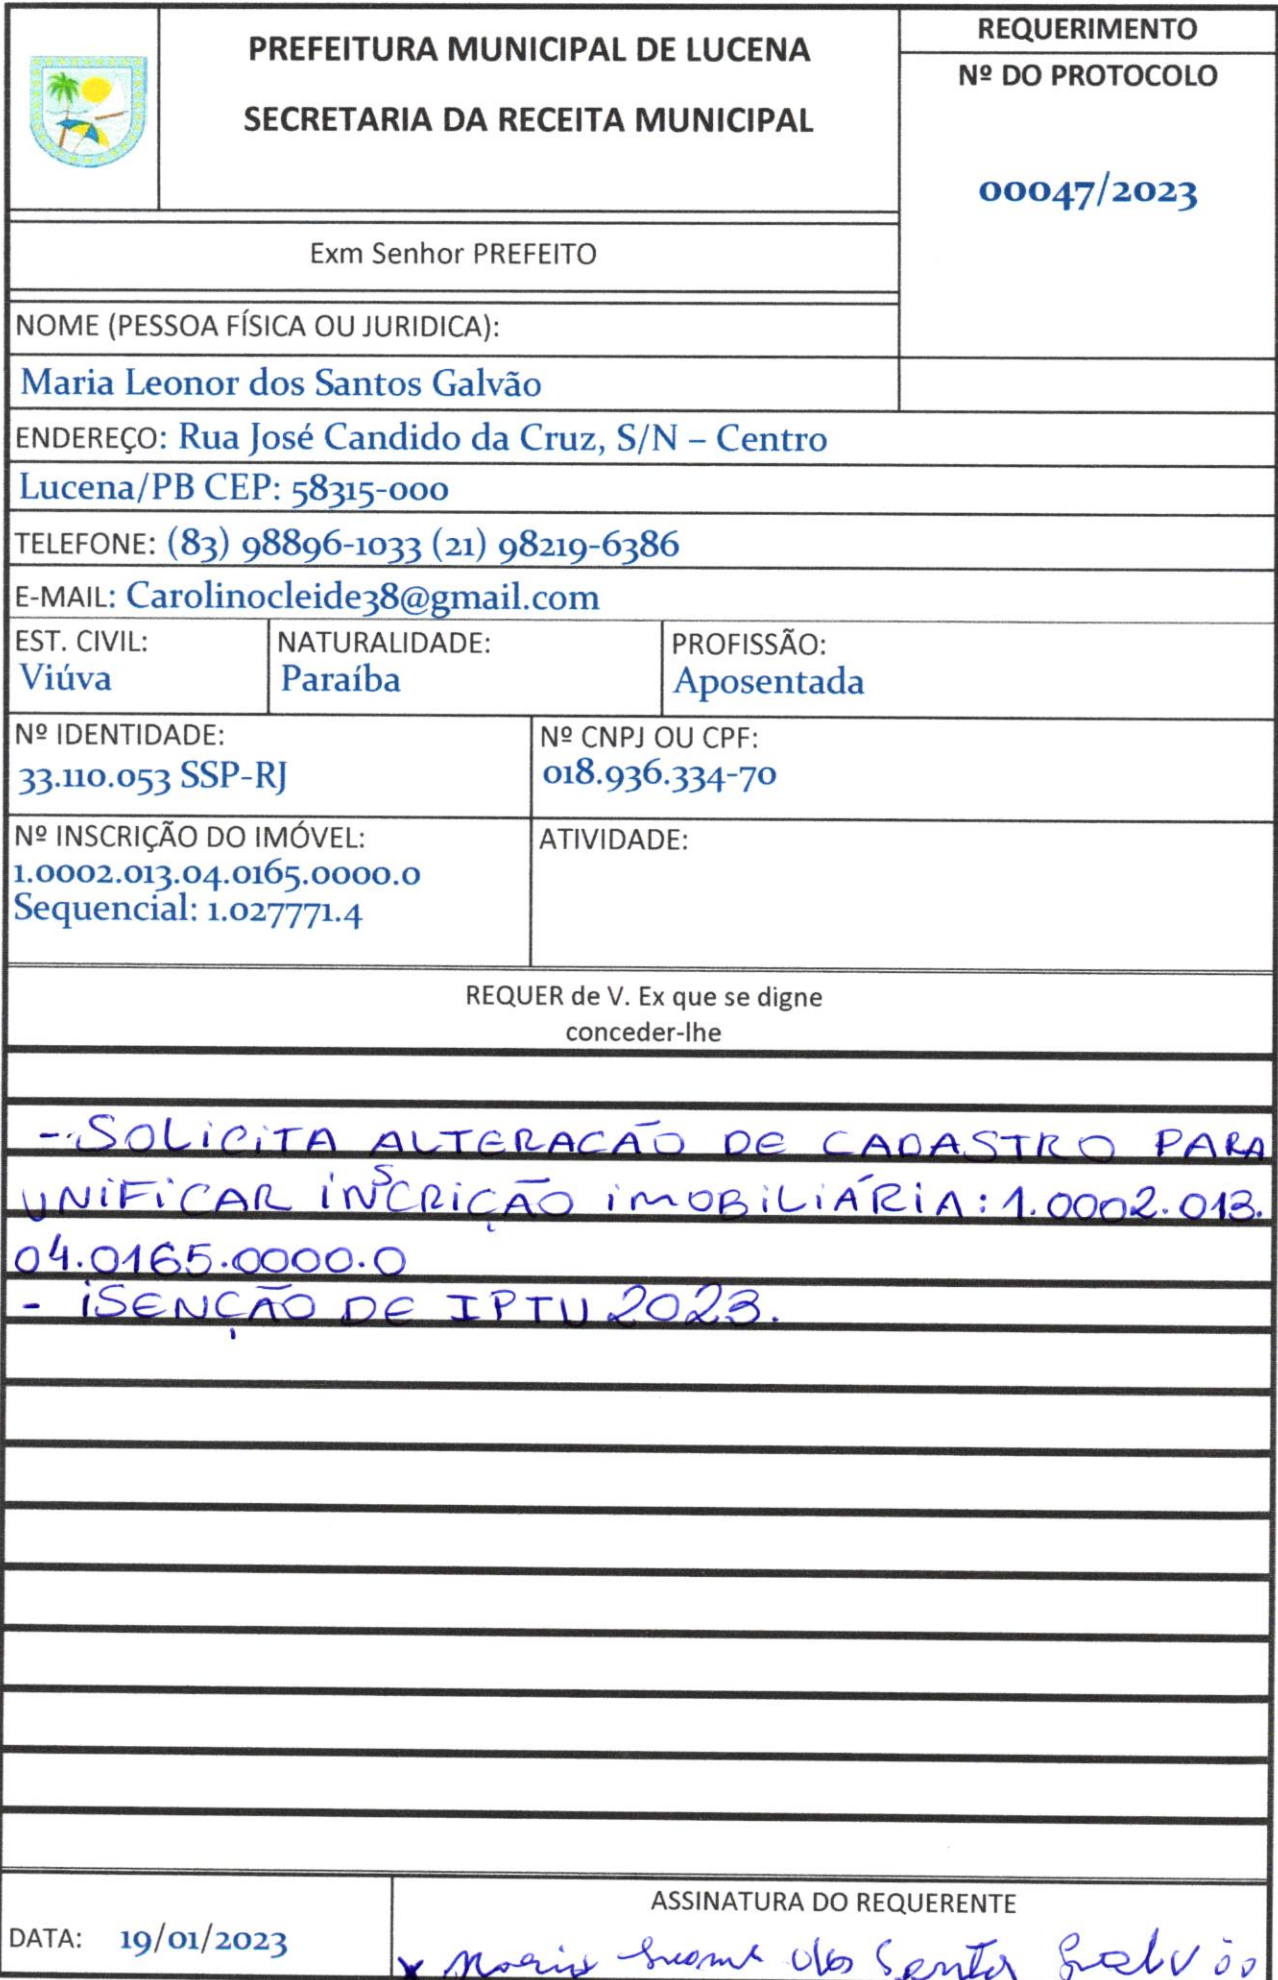 PREFEITURA MUNICIPAL DE LUCENA
SECRETARIA DA RECEITA MUNICIPAL
REQUERIMENTO
Nº DO PROTOCOLO
00047/2023
Exm Senhor PREFEITO
NOME (PESSOA FÍSICA OU JURIDICA):
Maria Leonor dos Santos Galvão
ENDEREÇO: Rua José Candido da Cruz, S/N – Centro
Lucena/PB CEP: 58315-000
TELEFONE: (83) 98896-1033 (21) 98219-6386
E-MAIL: Carolinocleide38@gmail.com
EST. CIVIL:
Viúva
NATURALIDADE:
Paraíba
PROFISSÃO:
Aposentada
Nº IDENTIDADE:
33.110.053 SSP-RJ
Nº CNPJ OU CPF:
018.936.334-70
Nº INSCRIÇÃO DO IMÓVEL:
1.0002.013.04.0165.0000.0
Sequencial: 1.027771.4
ATIVIDADE:
REQUER de V. Ex que se digne
conceder-lhe
- SOLICITA ALTERACÃO DE CADASTRO PARA
UNIFICAR INSCRIÇÃO IMOBILIÁRIA: 1.0002.013.
04.0165.0000.0
- ISENÇÃO DE IPTU 2023.
DATA: 19/01/2023
ASSINATURA DO REQUERENTE
x Maria Leonor dos Santos Galvão